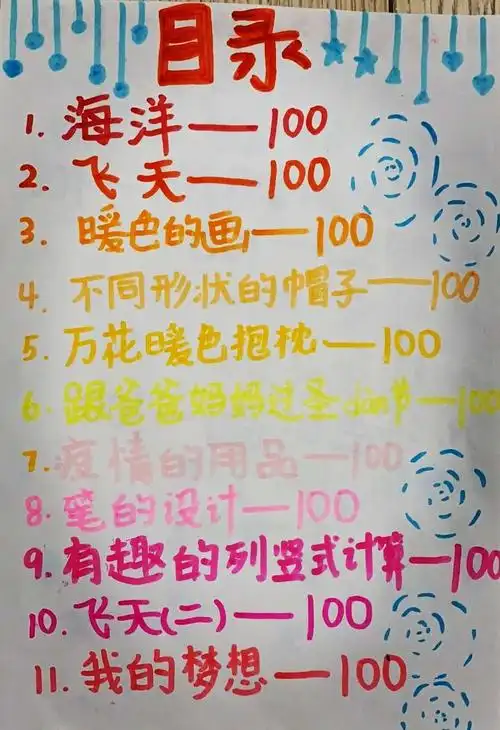 目录
1. 海洋——100
2. 飞天——100
3. 暖色的画——100
4. 不同形状的帽子——100
5. 万花暖色抱枕——100
6. 跟爸爸妈妈过圣dan节——100
7. 疫情的用品——100
8. 笔的设计——100
9. 有趣的列竖式计算——100
10. 飞天(二)——100
11. 我的梦想——100